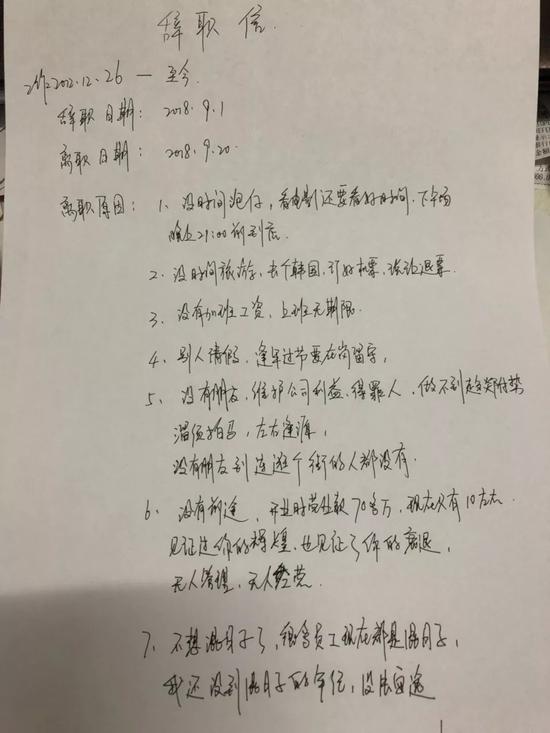 辞职信
工作2012.12.26 — 至今.
辞职日期: 2018.9.1
离职日期: 2018.9.20.
离职原因: 1、没时间泡仔, 看电影还要看好时间. 下午场
晚上21:00前到店.
2、没时间旅游, 去个韩国, 订好机票, 谈论退票.
3、没有加班工资, 上班无期限.
4、别人请假, 逢年过节要在岗留守,
5、没有朋友, 维护公司利益, 得罪人, 做不到趋炎附势
溜须拍马, 左右逢源,
没有朋友到连逛个街的人都没有.
6、没有前途, 开业时营业款70多万, 现在只有10左右.
见证过你的辉煌, 也见证了你的衰退,
无人管理, 无人经营.
7、不想混日子了, 很多员工现在都是混日子,
我还没到混日子的年纪,